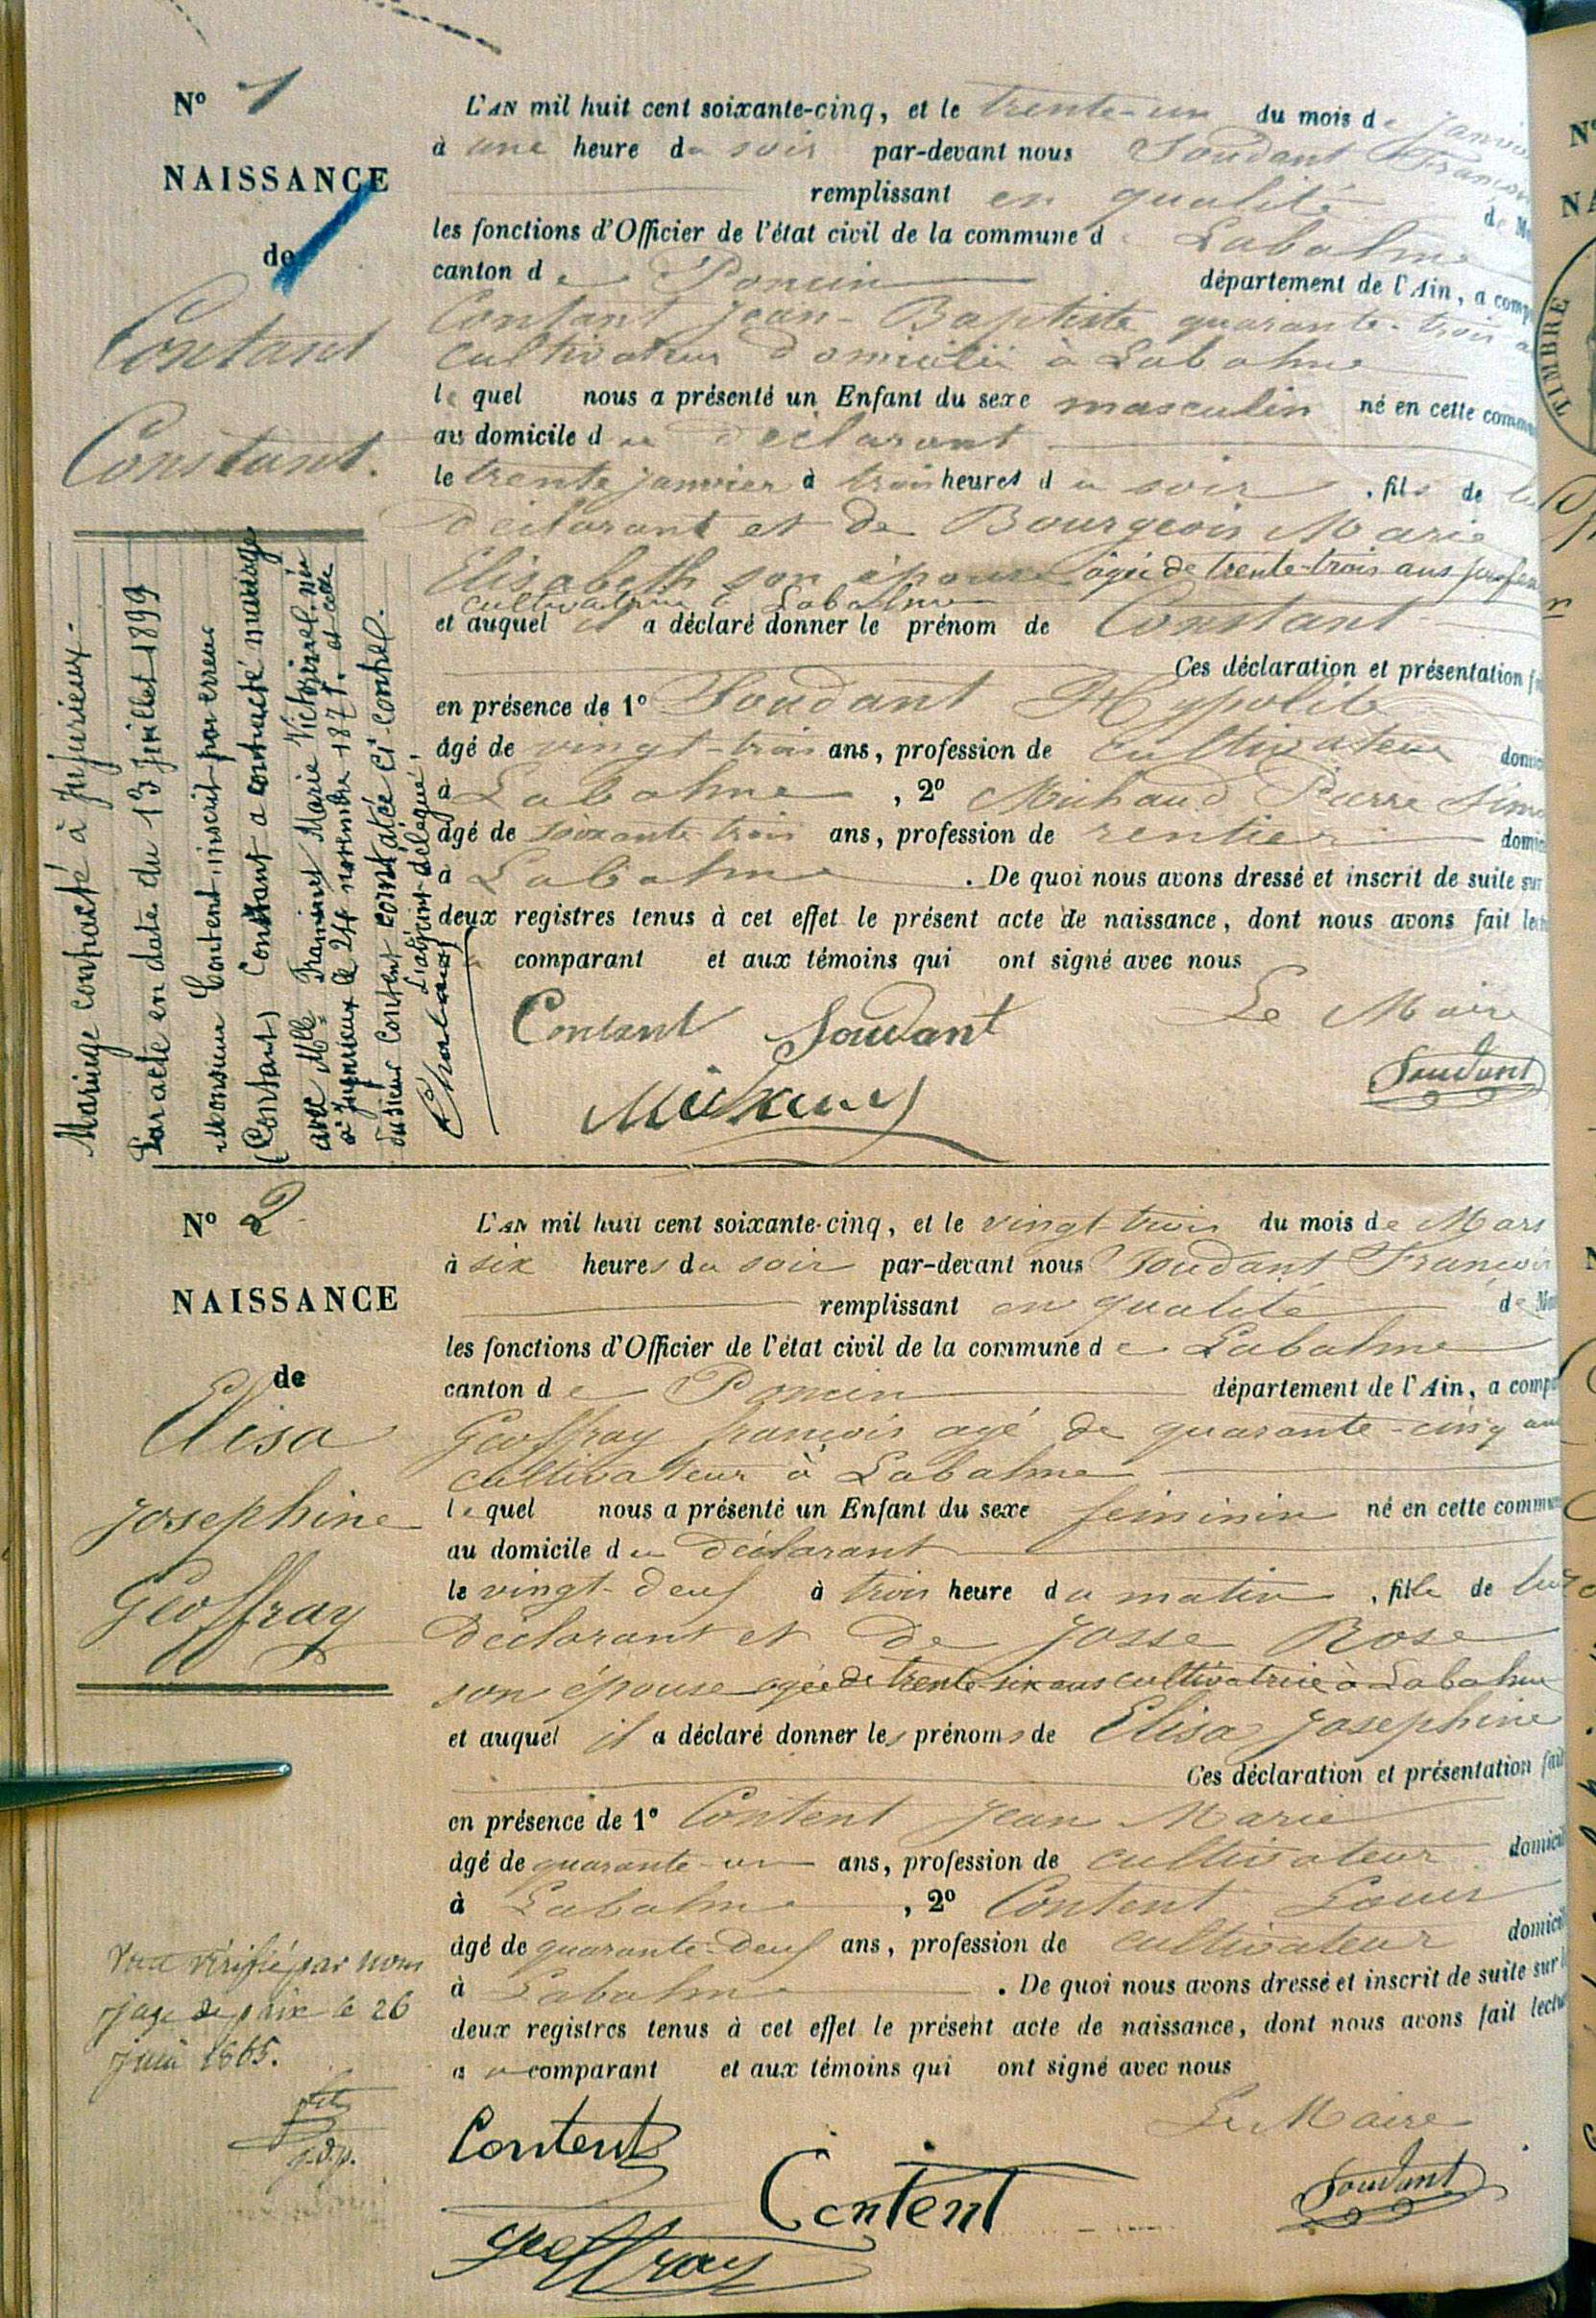 N° 1
NAISSANCE
de
Contant
Constant.
L'AN mil huit cent soixante-cinq, et le trente-un du mois de janvier
à une heure du soir par-devant nous Soudant François
remplissant en qualité de M
les fonctions d'Officier de l'état civil de la commune d Labalme
canton de Poncin département de l'Ain, a comp
Contant Jean-Baptiste quarante-trois a
cultivateur domicilié à Labalme
lequel nous a présenté un Enfant du sexe masculin né en cette commu
au domicile du déclarant
le trente janvier à trois heures du soir, fils de lui
déclarant et de Bourgeois Marie
Elisabeth son épouse âgée de trente-trois ans
cultivatrice à Labalme
et auquel il a déclaré donner le prénom de Constant
Ces déclaration et présentation f
en présence de 1° Soudant Hypolite
âgé de vingt-trois ans, profession de cultivateur domic
à Labalme, 2° Michaud Pierre Sim
âgé de soixante trois ans, profession de rentier domic
à Labalme. De quoi nous avons dressé et inscrit de suite sur
deux registres tenus à cet effet le présent acte de naissance, dont nous avons fait lec
comparant et aux témoins qui ont signé avec nous
Contant Soudant Le Maire
Michaud Soudant
Mariage contracté à Jujurieux.
Par acte en date du 13 Juillet 1899
Monsieur Content, inscrit par erreur
(Contant) Constant a contracté mariage
avec Mlle Framinet Marie Victorine, née
à Jujurieux le 24 novembre 1877. et celle
du sieur Content constatée ci-contre.
L'adjoint délégué,
N° 2
NAISSANCE
de
Elisa
Josephine
Geoffray
L'AN mil huit cent soixante-cinq, et le vingt-trois du mois de Mars
à six heures du soir par-devant nous Soudant François
remplissant en qualité de M
les fonctions d'Officier de l'état civil de la commune de Labalme
canton de Poncin département de l'Ain, a comp
Geoffray françois agé de quarante-cinq ans
cultivateur à Labalme
lequel nous a présenté un Enfant du sexe feminin né en cette commun
au domicile du déclarant
le vingt-deux à trois heure du matin, fille de lui
déclarant et de Josse Rose
son épouse agée de trente-six ans cultivatrice à Labalme
et auquel il a déclaré donner les prénoms de Elisa Josephine
Ces déclaration et présentation fait
en présence de 1° Content Jean Marie
âgé de quarante-un ans, profession de cultivateur domicil
à Labalme, 2° Content Louis
âgé de quarante-deux ans, profession de cultivateur domicil
à Labalme. De quoi nous avons dressé et inscrit de suite sur
deux registres tenus à cet effet le présent acte de naissance, dont nous avons fait lectu
au comparant et aux témoins qui ont signé avec nous
Le Maire
Content Content Soudant
Geoffray
Vu et vérifié par nous
juge de paix le 26
juin 1865.
j.d.p.
TIMBRE